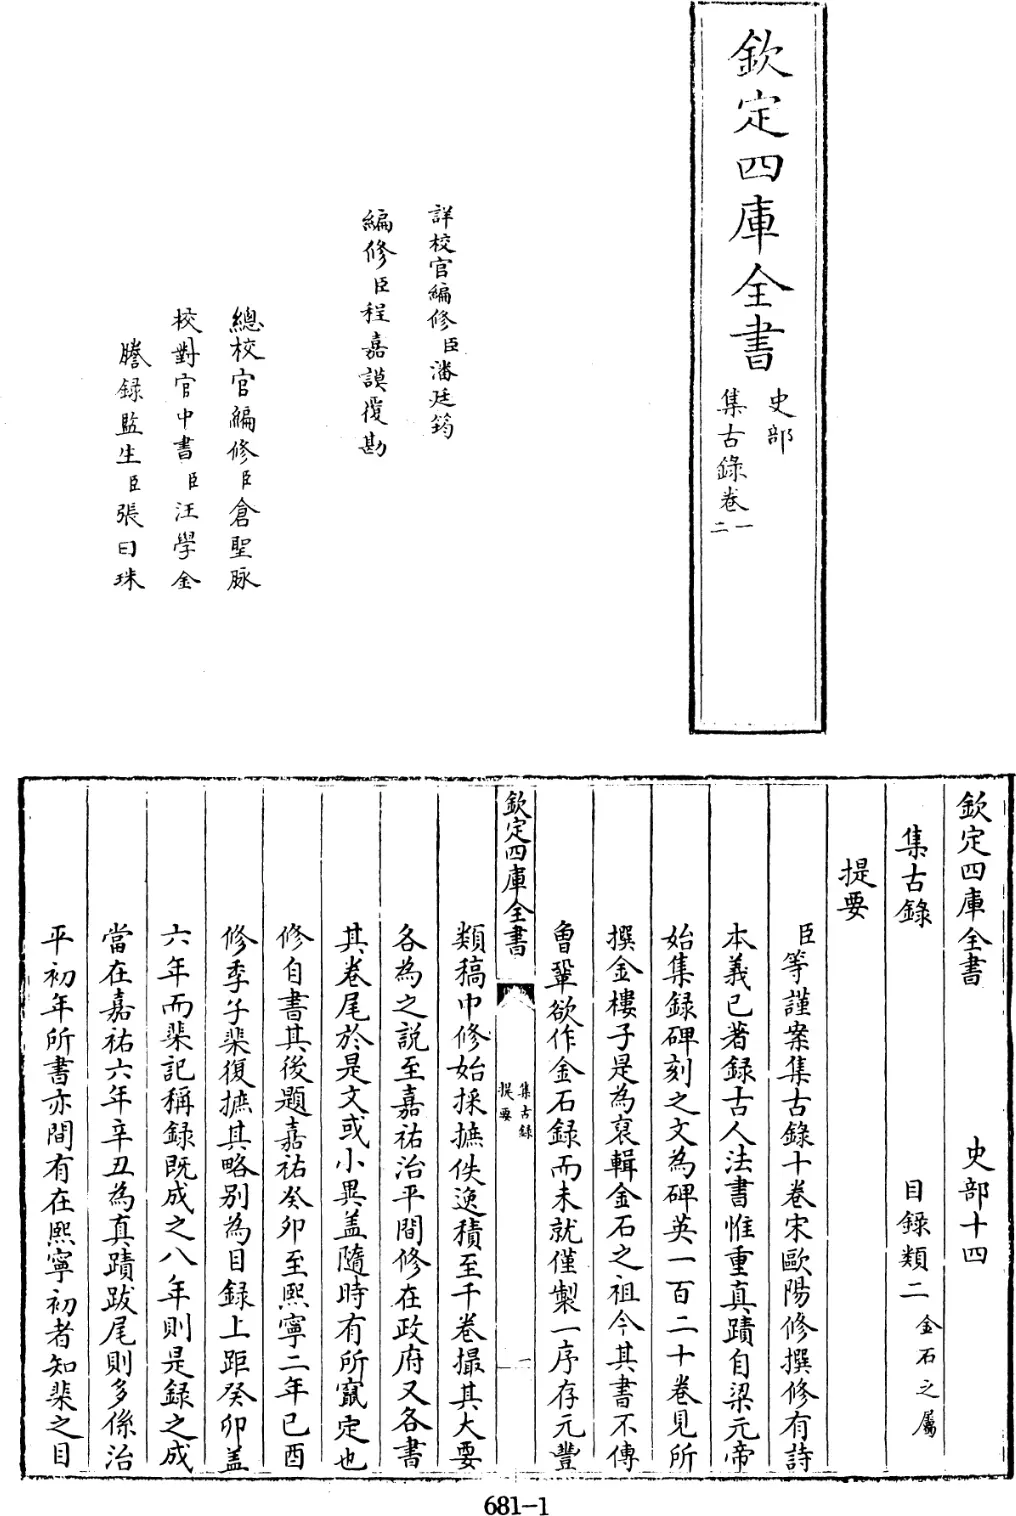 欽定四庫全書
史部
集古錄卷一
二
詳校官編修臣潘廷筠
編修臣程嘉謨覆勘
總校官編修臣倉聖脉
校對官中書臣汪學金
謄錄監生臣張曰珠
欽定四庫全書 史部十四
集古錄 目録類二金石之屬
提要
臣等謹案集古錄十卷宋歐陽修撰修有詩
本義已著録古人法書惟重真蹟自梁元帝
始集録碑刻之文為碑英一百二十卷見所
撰金樓子是為裒輯金石之祖今其書不傳
曾鞏欲作金石録而未就僅製一序存元豐
欽定四庫全書
集古錄
提要
一
類稿中修始採摭佚逸積至千卷撮其大要
各為之説至嘉祐治平間修在政府又各書
其卷尾於是文或小異盖隨時有所竄定也
修自書其後題嘉祐癸卯至熙寧二年己酉
修季子棐復摭其略别為目録上距癸卯盖
六年而棐記稱録既成之八年則是録之成
當在嘉祐六年辛丑為真蹟跋尾則多係治
平初年所書亦間有在熙寧初者知棐之目
681-1